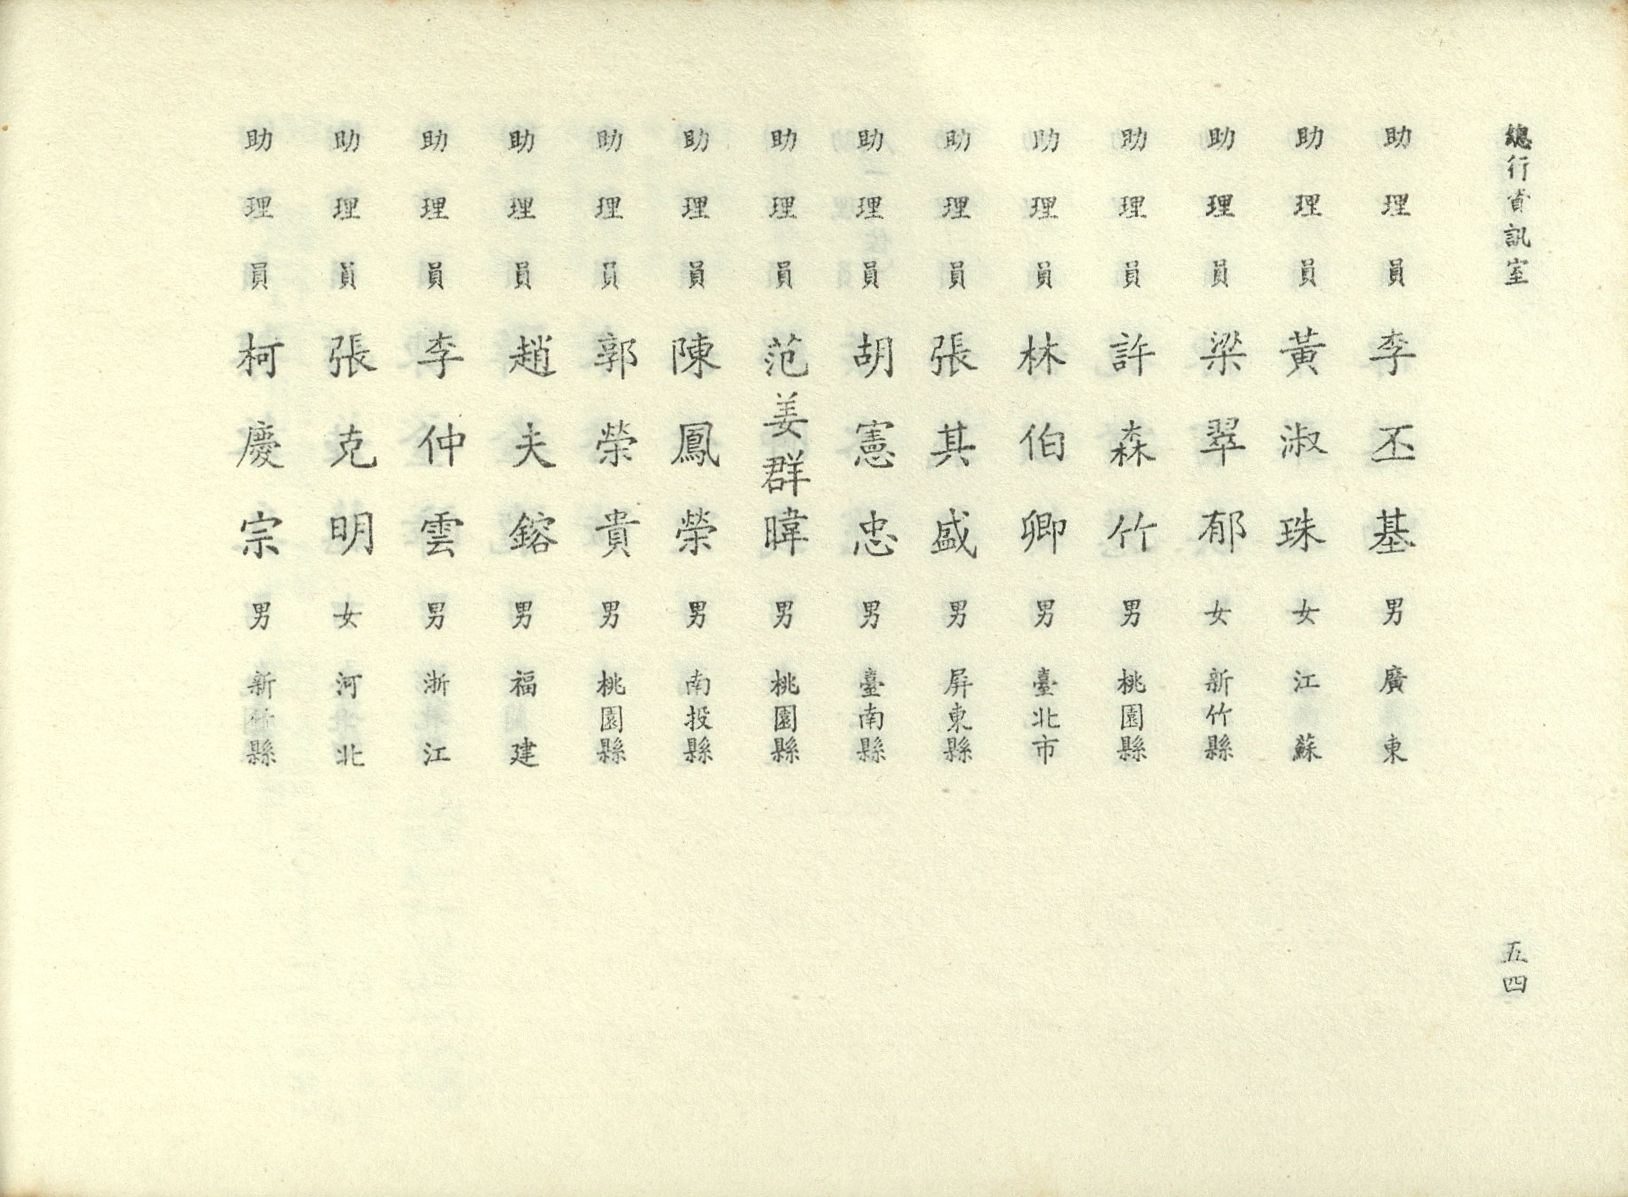 總行資訊室
五四
助理員 李丕基 男 廣東
助理員 黃淑珠 女 江蘇
助理員 梁翠郁 女 新竹縣
助理員 許森竹 男 桃園縣
助理員 林伯卿 男 臺北市
助理員 張其盛 男 屏東縣
助理員 胡憲忠 男 臺南縣
助理員 范姜群暐 男 桃園縣
助理員 陳鳳榮 男 南投縣
助理員 郭榮貴 男 桃園縣
助理員 趙夫鎔 男 福建
助理員 李仲雲 男 浙江
助理員 張克明 女 河北
助理員 柯慶宗 男 新竹縣